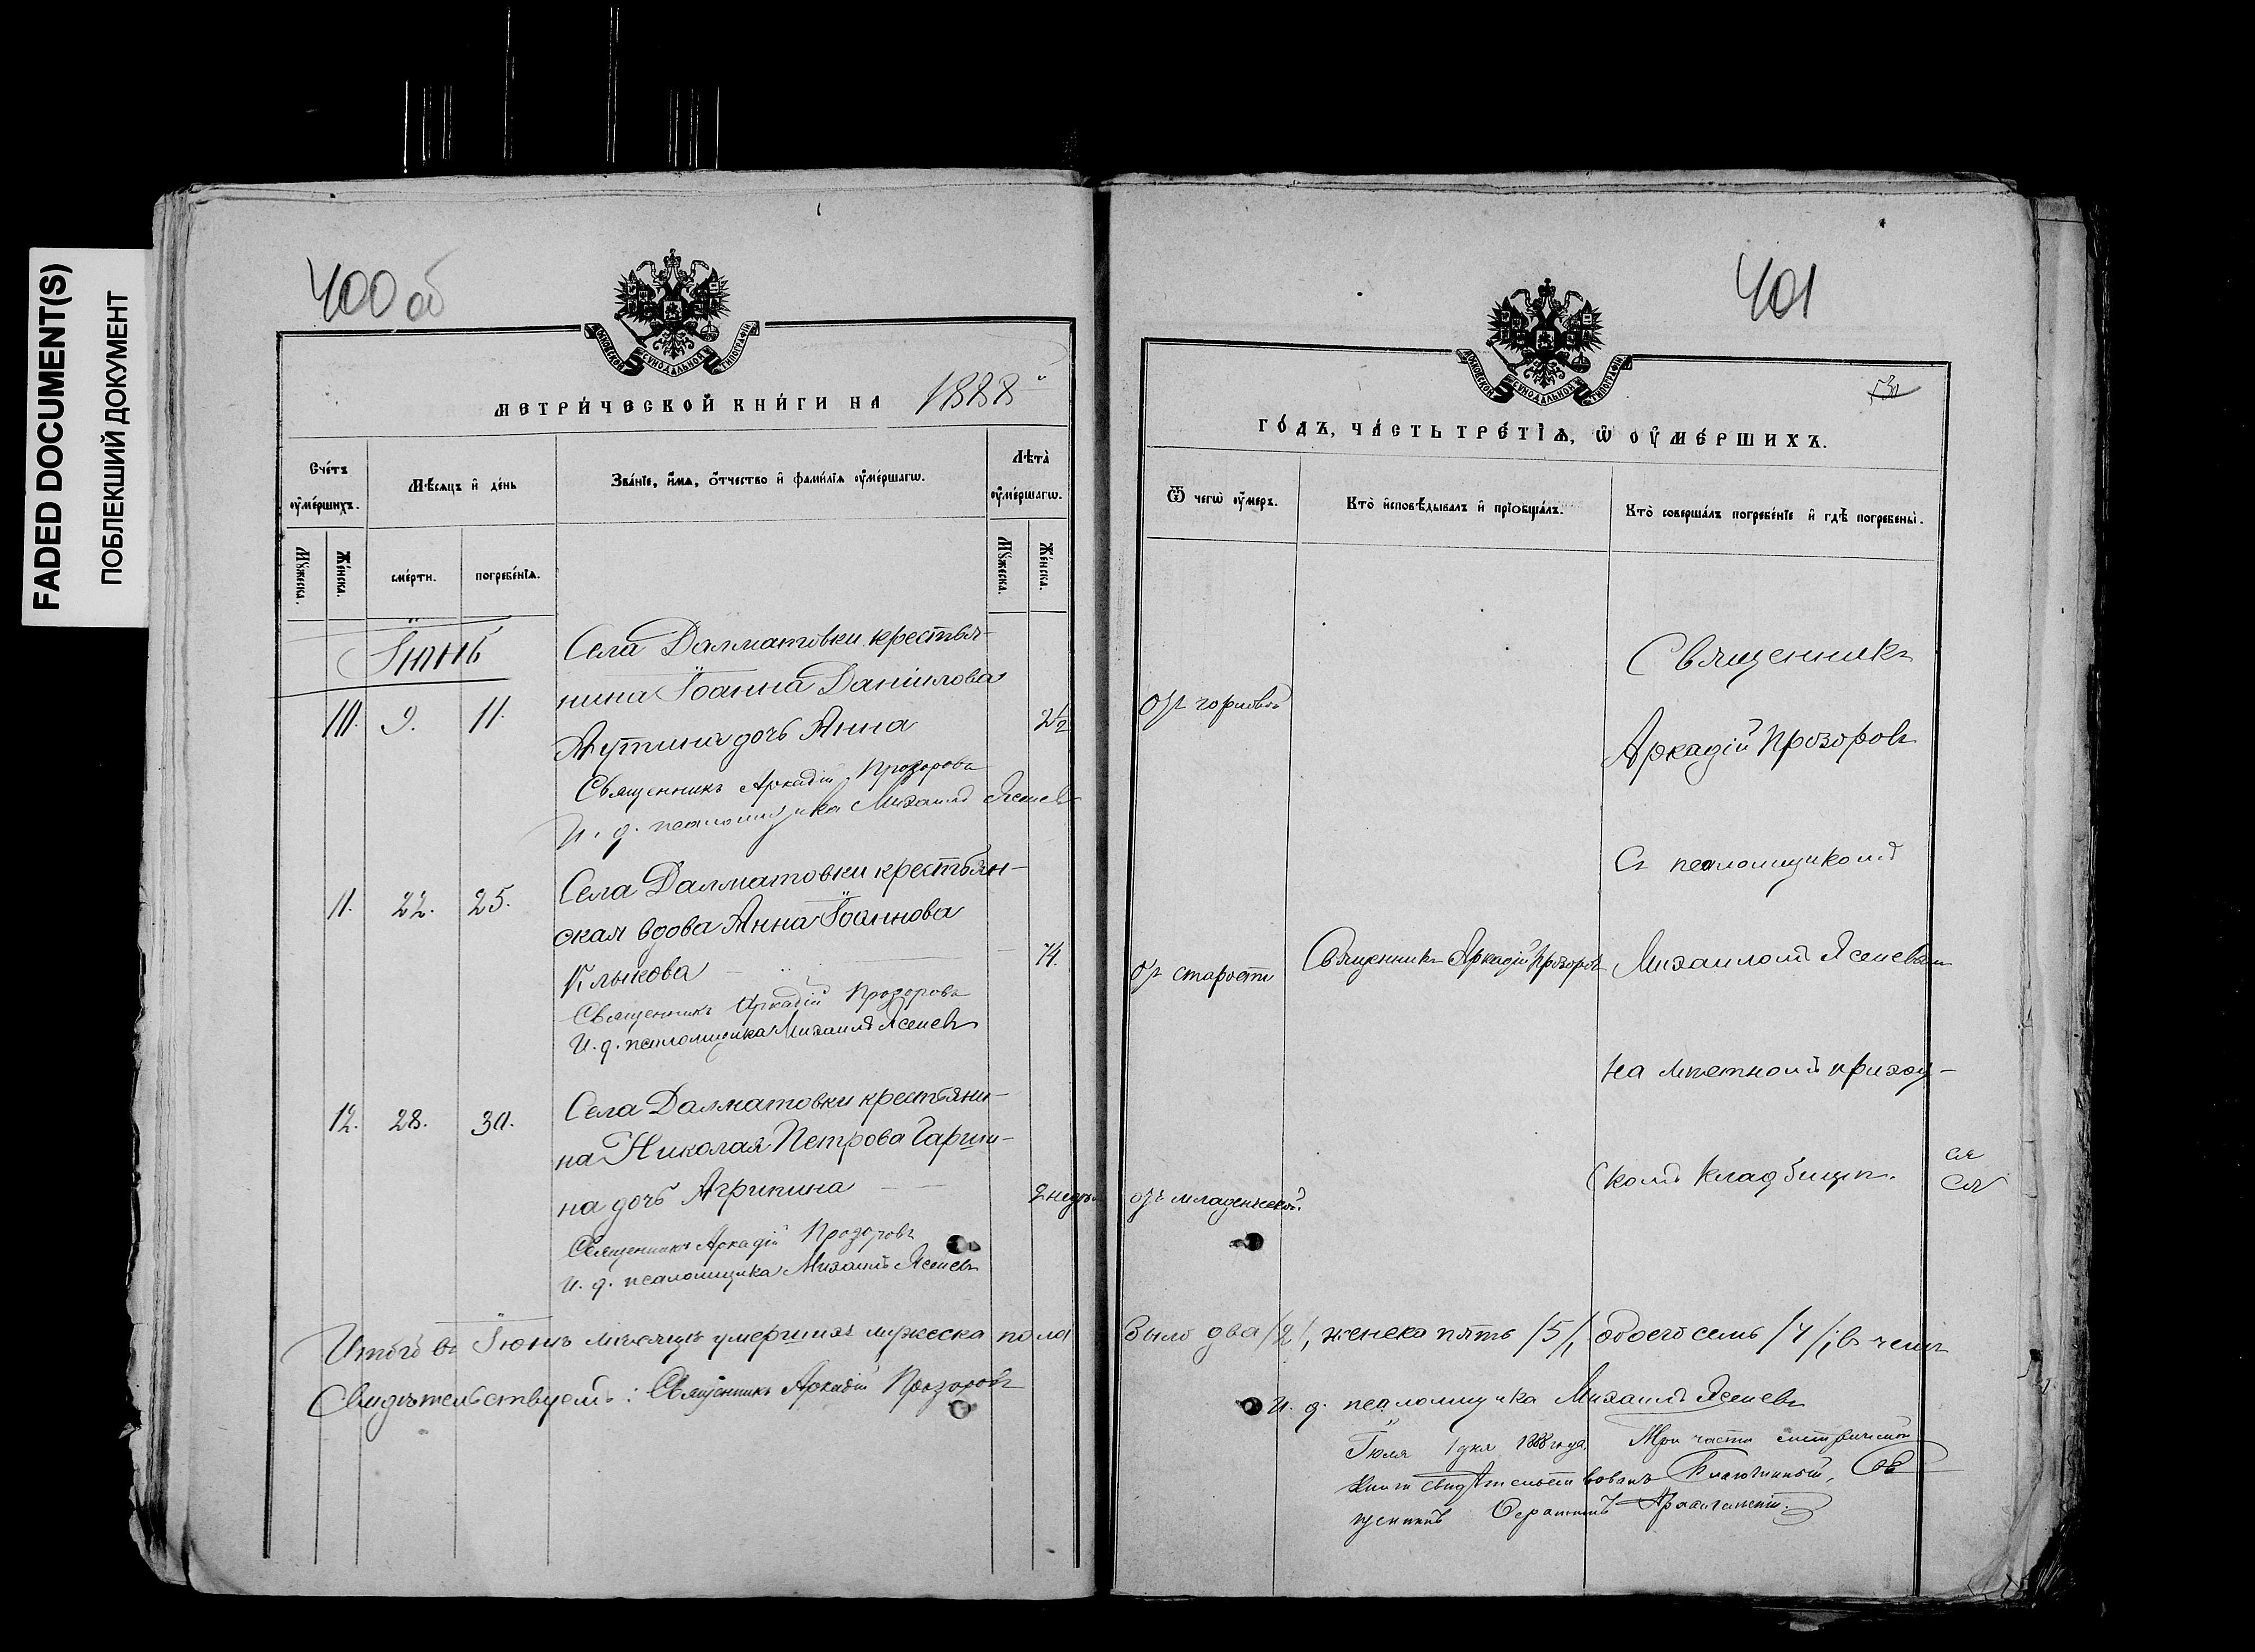 FADED DOCUMENT(S)
ПОБЛЕКШИЙ ДОКУМЕНТ
400 об
МОСКОВСКОЙ СУНОДАЛЬНОЙ ТИПОГРАФІИ
МЕТРИЧЕСКОЙ КНИГИ НА 1888
Счетъ оумершихъ.
Мѣсяцъ и день
Званіе, имя, отчество и фамилія оумершагω.
Лѣта оумершагω.
Мужеска.
Женска.
смерти.
погребенія.
Мужеска.
Женска.
Іюнь
Села Далматовки крестья-
нина Іоанна Даніилова
10. 9. 11. дочь Анна 2½
Священникъ Аркадій Прозоровъ
И. д. псаломщика Михаилъ Ясеневъ
Села Далматовки крестьян-
11. 22. 25.
ская вдова Анна Іоаннова
Клыкова 74.
Священникъ Аркадій Прозоровъ
И. д. псаломщика Михаилъ Ясеневъ
Села Далматовки крестьяни-
12. 28. 30.
на Николая Петрова Гарши-
на дочь Агрипина 2 недѣ.
Священникъ Аркадій Прозоровъ
И. д. псаломщика Михаилъ Ясеневъ
Итого въ Іюнѣ мѣсяцѣ умершихъ мужеска пола
Свидѣтельствуемъ: Священникъ Аркадій Прозоровъ
401
МОСКОВСКОЙ СУНОДАЛЬНОЙ ТИПОГРАФІИ
ГОДЪ, ЧАСТЬ ТРЕТІЯ, Ѡ ОУМЕРШИХЪ.
Ѿ чегω оумеръ.
Кто исповѣдывалъ и пріобщалъ.
Кто совершалъ погребеніе и гдѣ погребены.
Священникъ
отъ горловой
Аркадій Прозоровъ
Съ псаломщикомъ
отъ старости Священникъ Аркадій Прозоровъ Михаиломъ Ясеневымъ
на мѣстномъ приход-
скомъ кладбищѣ.
отъ младенческой
было два /2/, женска пять /5/, обоего семь /7/; въ чемъ
И. д. псаломщика Михаилъ Ясеневъ
Іюля 1 дня 1888 года. Три части метрической
книги свидѣтельствовалъ Благочинный, Свя
щенникъ